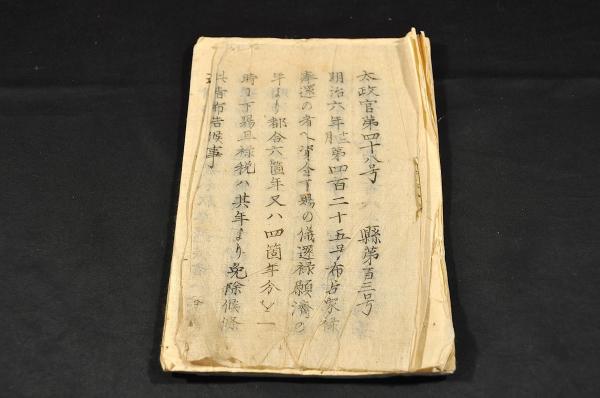 太政官第四十八号 縣第百三号
明治六年十二月第四百二十五号布告家禄
奉還の者へ資金下賜の儀還禄願済の
年より都合六箇年又ハ四箇年分を一
時ニ下賜且禄税ハ其年より免除候條
此旨布告候事